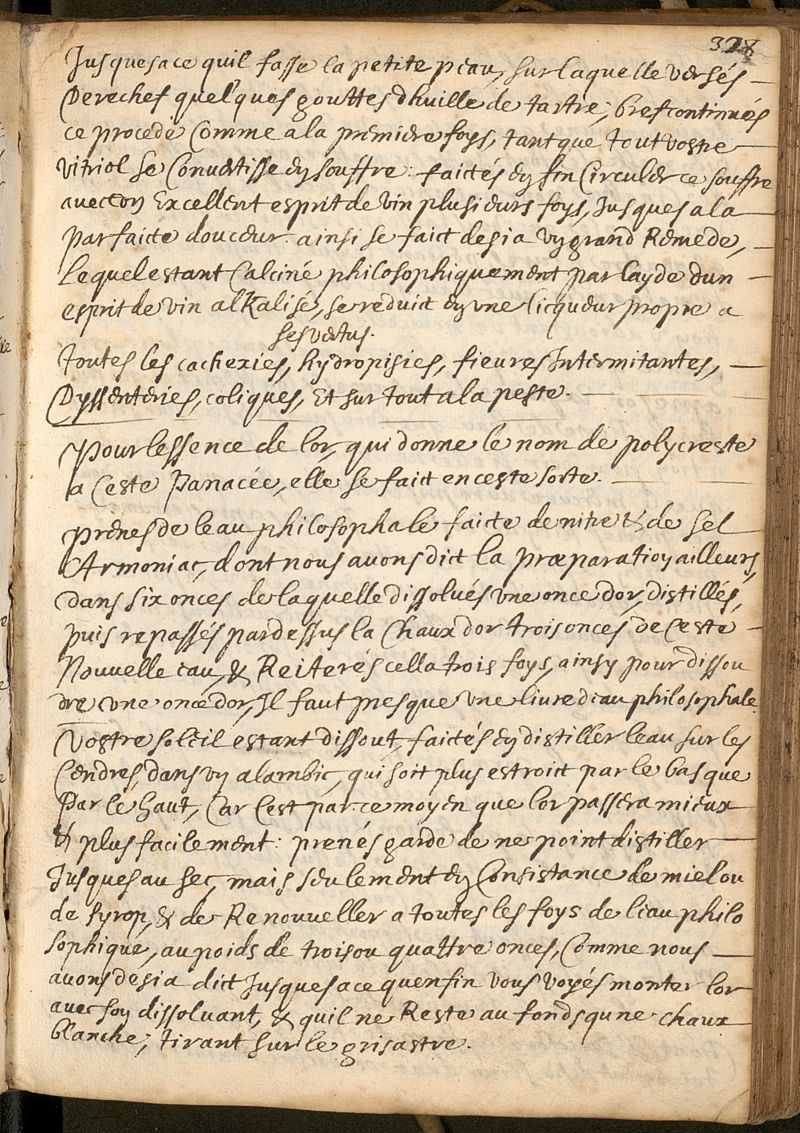 328
Jusquesace quil fasse la petite peau, sur laquelle versés
Derechef quelques gouttes dhuille de tartre; bref continués
ce procede Comme a la premiere foys, tant que tout vostre
vitriol se Convertisse en souffre: faictés en fin Circuler ce souffre
avec un Excellent esprit de vin plusieurs foys, Jusques a la
parfaicte douceur: ainsi se faict desia un grand Remede,
Lequel estant Calciné philosophiquement par layde dun
esprit de vin alKalisé, se reduict en une licqueur propre a
ses vertus.
toutes les cachexies, hydropisies, fievres Intermitantes,
Dyssenteries, coliques, Et sur tout a la peste.
Pour lessence de lor, qui donne le nom de polycreste
a Ceste Panacée, elle se faict en ceste sorte.
prénes de leau philosophale faicte de nitre & de sel
Armoniac, dont nous avons dict la præparation ailleurs,
dans six onces de laquelle dissolvés une once dor, distillés,
puis repassés par dessus la Chaux dor trois onces de Ceste
Nouvelle eau, & Reiterés cella trois foys, ainsy pour dissou
dre une once dor, Il faut presque une livre deau philosophale
Vostre soleil estant dissout, faictés en distiller leau sur les
Cendres, dans un alambic, qui soit plus estroit par le bas que
Par le haut, Car Cest par ce moyen que lor passera mieux
& plus facilement: prenés garde de ne point distiller
Jusques au sec, mais seulement en Consistance de miel ou
de syrop, & de Renouveller a toutes les foys de leau philo
sophique, au poids de trois ou quattre onces, Comme nous
avons desia dict Jusques a ce quenfin vous voyés monter lor
avec son dissolvant, & quil ne Reste au fonds qune chaux
blanche, tirant sur le grisastre.